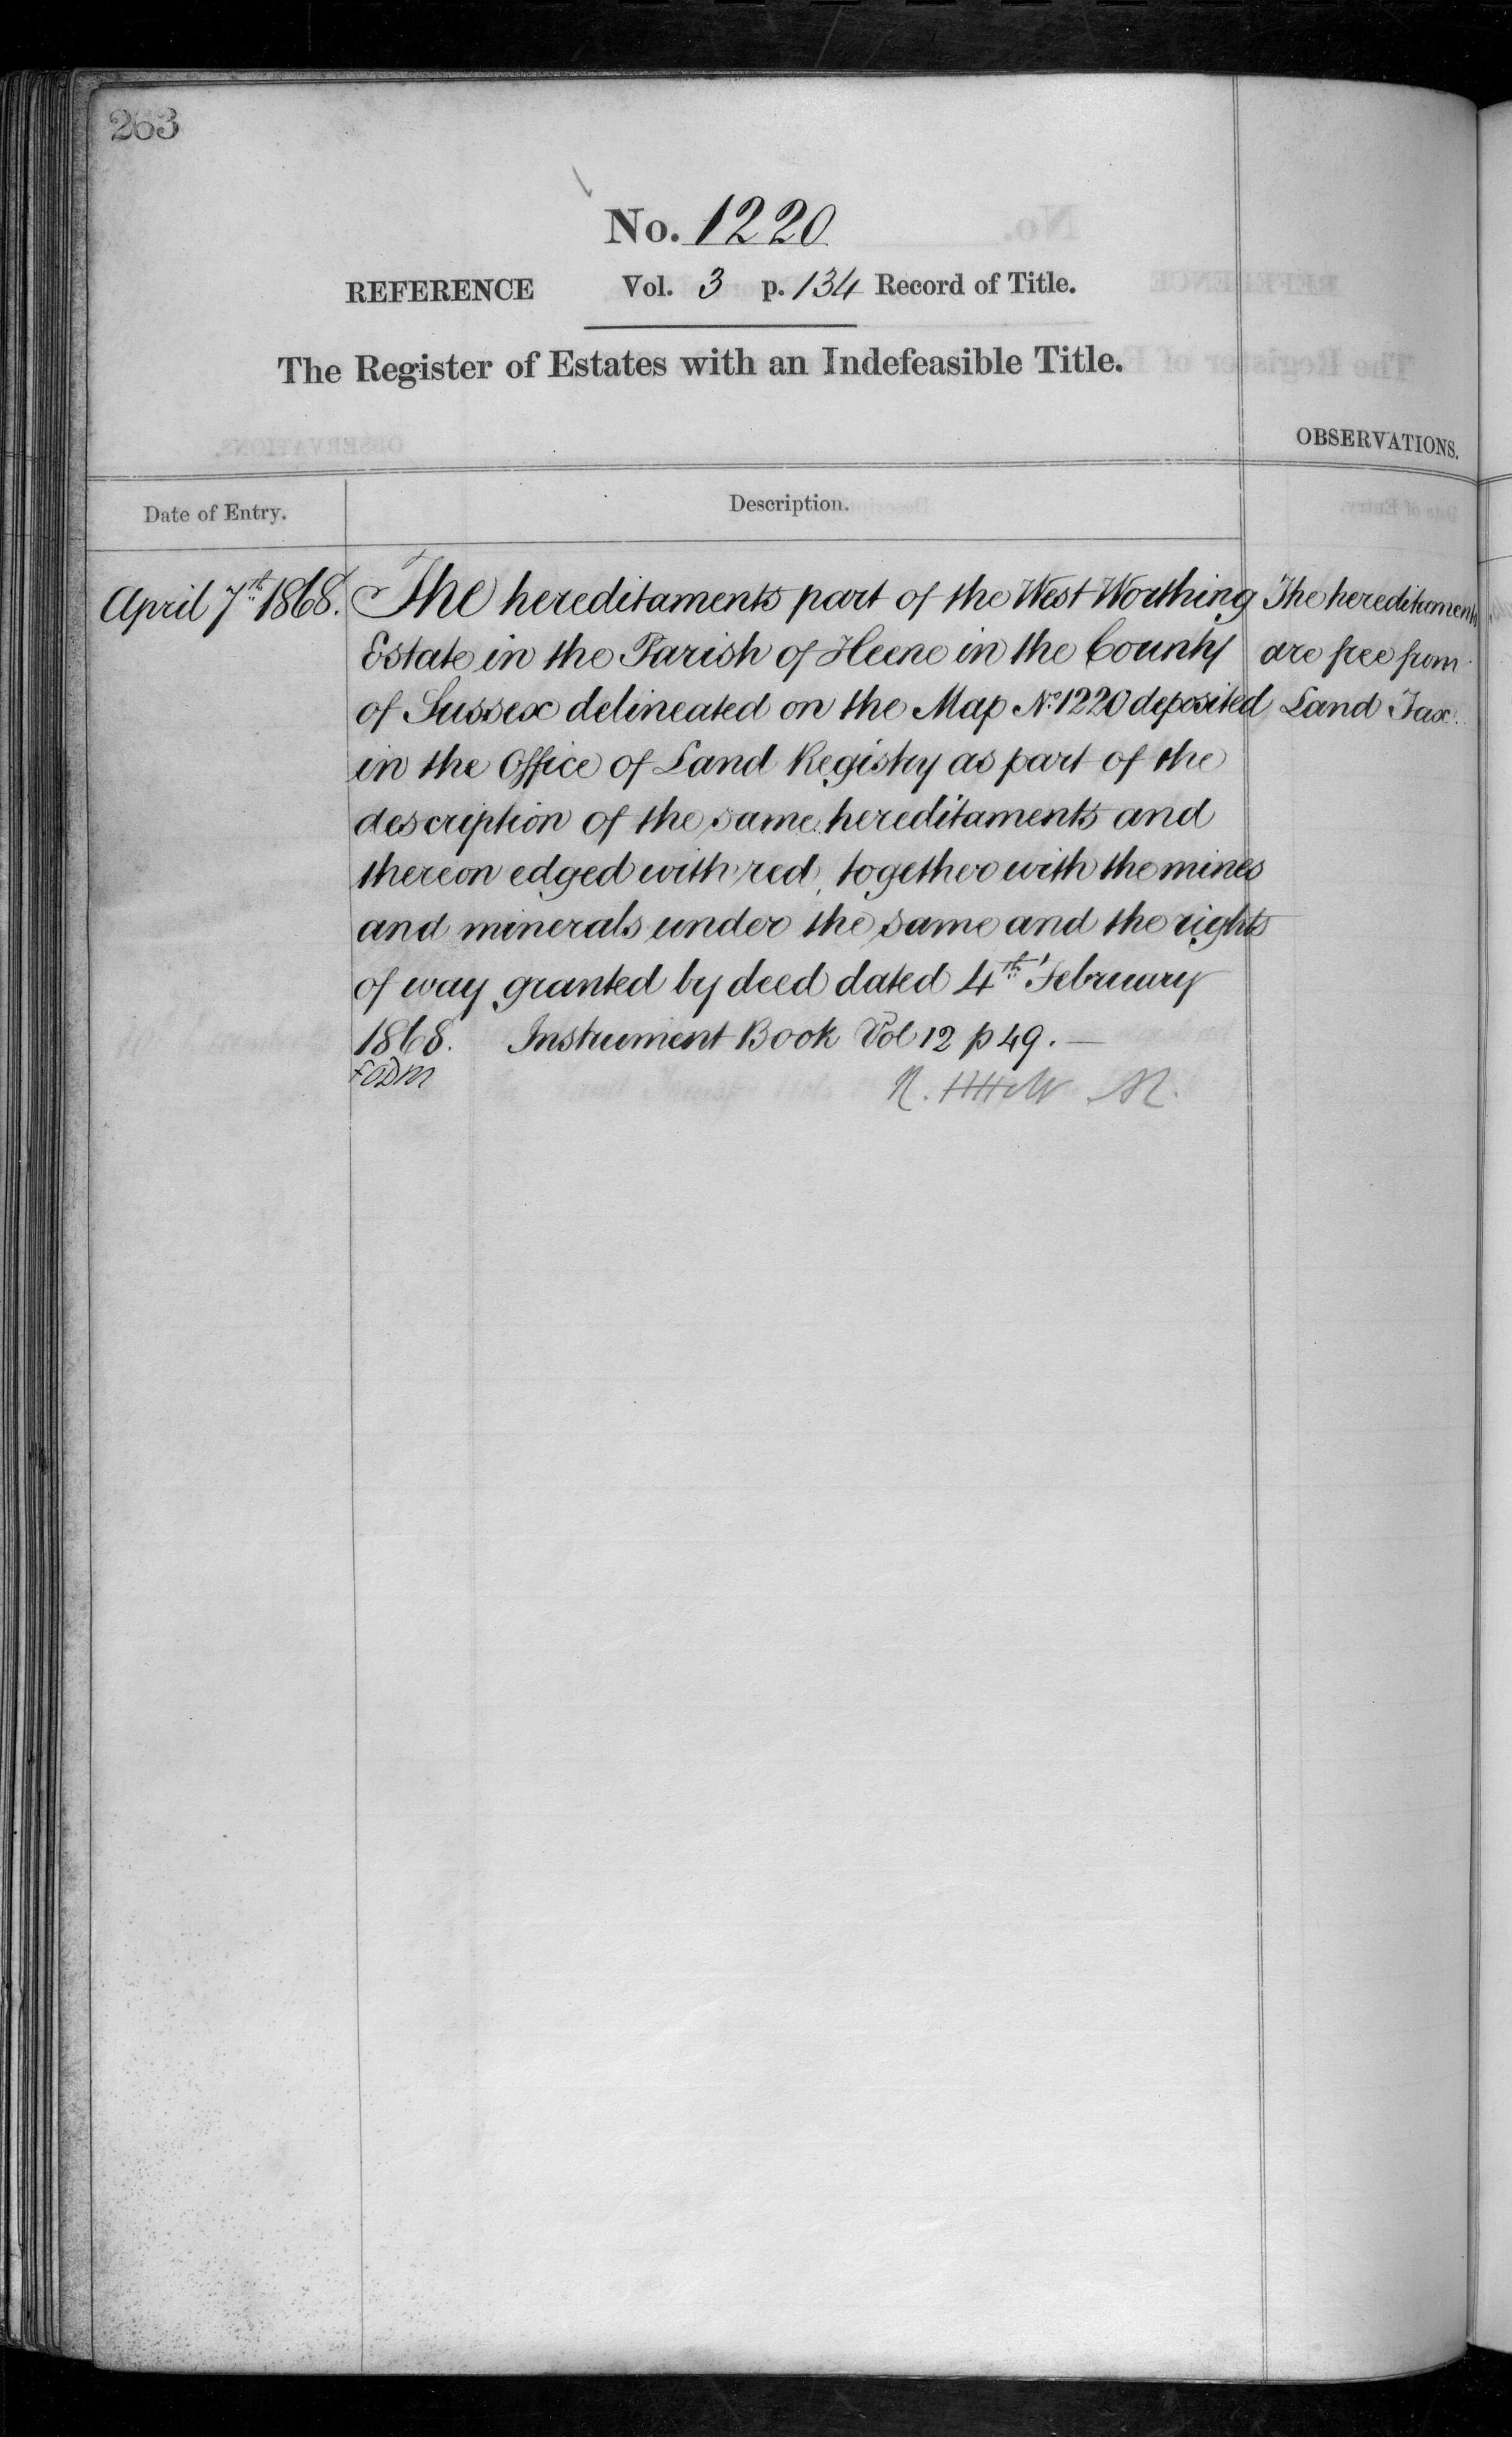 263
No. 1220
REFERENCE Vol. 3 p. 134 Record of Title.
The Register of Estates with an Indefeasible Title.
OBSERVATIONS.
Date of Entry.
Description.
April 7th 1868.
The hereditaments part of the West Worthing
Estate in the Parish of Heene in the County
of Sussex delineated on the Map No. 1220 deposited
in the Office of Land Registry as part of the
description of the same hereditaments and
thereon edged with red, together with the mines
and minerals under the same and the rights
of way granted by deed dated 4th February
1868. Instrument Book Vol 12 p 49.
The hereditaments
are free from
Land Tax.